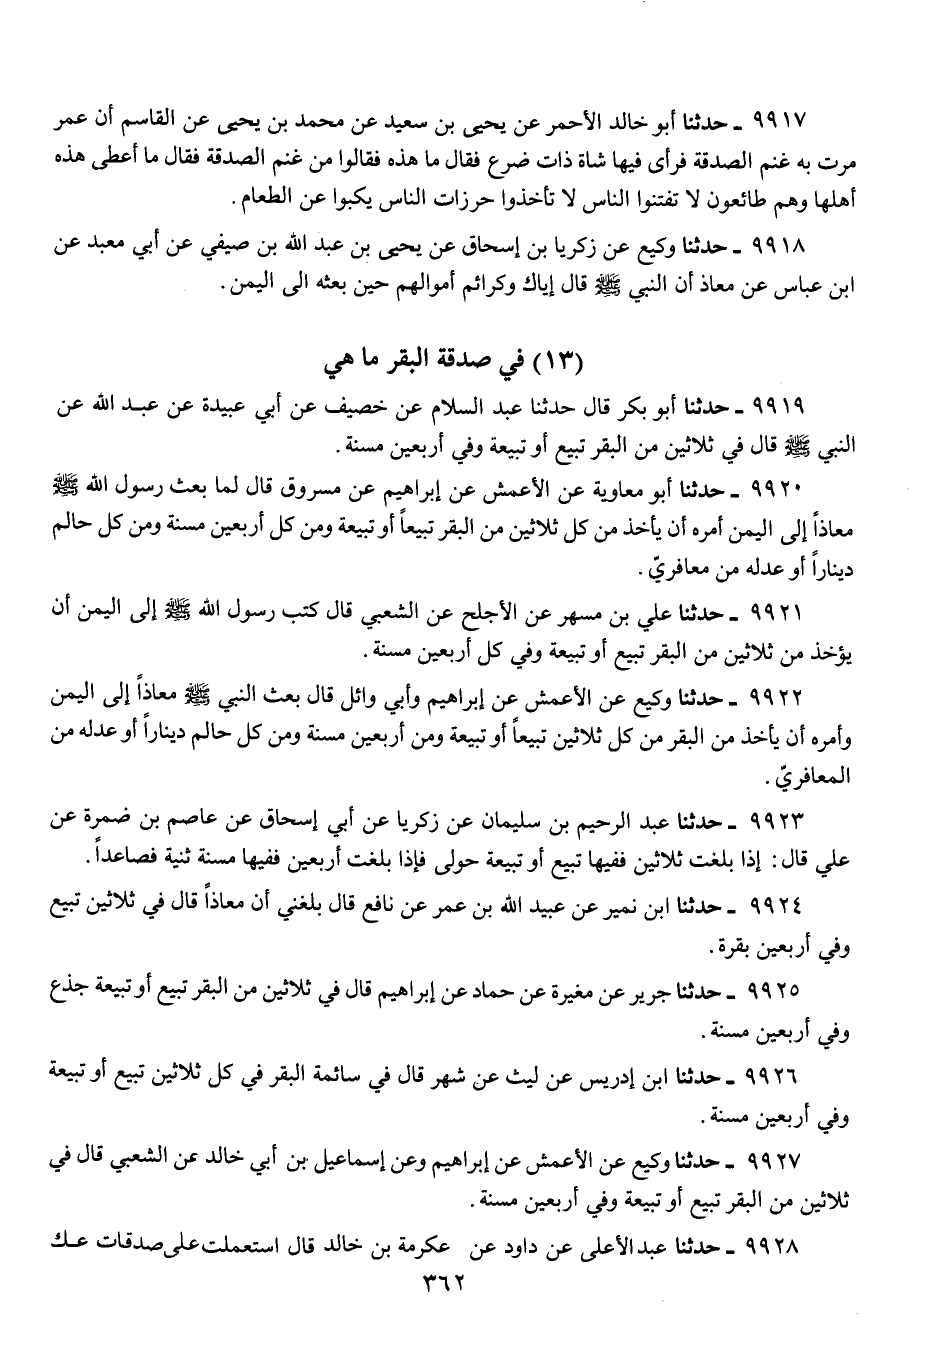 ٩٩١٧ ـ حدثنا أبو خالد الأحمر عن يحيى بن سعيد عن محمد بن يحيى عن القاسم أن عمر
مرت به غنم الصدقة فرأى فيها شاة ذات ضرع فقال ما هذه فقالوا من غنم الصدقة فقال ما أعطى هذه
أهلها وهم طائعون لا تفتنوا الناس لا تأخذوا حرزات الناس يكبوا عن الطعام.
٩٩١٨ ـ حدثنا وكيع عن زكريا بن إسحاق عن يحيى بن عبد الله بن صيفي عن أبي معبد عن
ابن عباس عن معاذ أن النبي ﷺ قال إياك وكرائم أموالهم حين بعثه الى اليمن.
(١٣) في صدقة البقر ما هي
٩٩١٩ ـ حدثنا أبو بكر قال حدثنا عبد السلام عن خصيف عن أبي عبيدة عن عبد الله عن
النبي ﷺ قال في ثلاثين من البقر تبيع أو تبيعة وفي أربعين مسنة.
٩٩٢٠ ـ حدثنا أبو معاوية عن الأعمش عن إبراهيم عن مسروق قال لما بعث رسول الله ﷺ
معاذاً إلى اليمن أمره أن يأخذ من كل ثلاثين من البقر تبيعاً أو تبيعة ومن كل أربعين مسنة ومن كل حالم
ديناراً أو عدله من معافريّ.
٩٩٢١ ـ حدثنا علي بن مسهر عن الأجلح عن الشعبي قال كتب رسول الله ﷺ إلى اليمن أن
يؤخذ من ثلاثين من البقر تبيع أو تبيعة وفي كل أربعين مسنة.
٩٩٢٢ ـ حدثنا وكيع عن الأعمش عن إبراهيم وأبي وائل قال بعث النبي ﷺ معاذاً إلى اليمن
وأمره أن يأخذ من البقر من كل ثلاثين تبيعاً أو تبيعة ومن أربعين مسنة ومن كل حالم ديناراً أو عدله من
المعافريّ.
٩٩٢٣ ـ حدثنا عبد الرحيم بن سليمان عن زكريا عن أبي إسحاق عن عاصم بن ضمرة عن
علي قال: إذا بلغت ثلاثين ففيها تبيع أو تبيعة حولى فإذا بلغت أربعين ففيها مسنة ثنية فصاعداً.
٩٩٢٤ ـ حدثنا ابن نمير عن عبيد الله بن عمر عن نافع قال بلغني أن معاذاً قال في ثلاثين تبيع
وفي أربعين بقرة.
٩٩٢٥ ـ حدثنا جرير عن مغيرة عن حماد عن إبراهيم قال في ثلاثين من البقر تبيع أو تبيعة جذع
وفي أربعين مسنة.
٩٩٢٦ ـ حدثنا ابن إدريس عن ليث عن شهر قال في سائمة البقر في كل ثلاثين تبيع أو تبيعة
وفي أربعين مسنة.
٩٩٢٧ ـ حدثنا وكيع عن الأعمش عن إبراهيم وعن إسماعيل بن أبي خالد عن الشعبي قال في
ثلاثين من البقر تبيع أو تبيعة وفي أربعين مسنة.
٩٩٢٨ ـ حدثنا عبد الأعلى عن داود عن عكرمة بن خالد قال استعملت على صدقات عك
٣٦٢